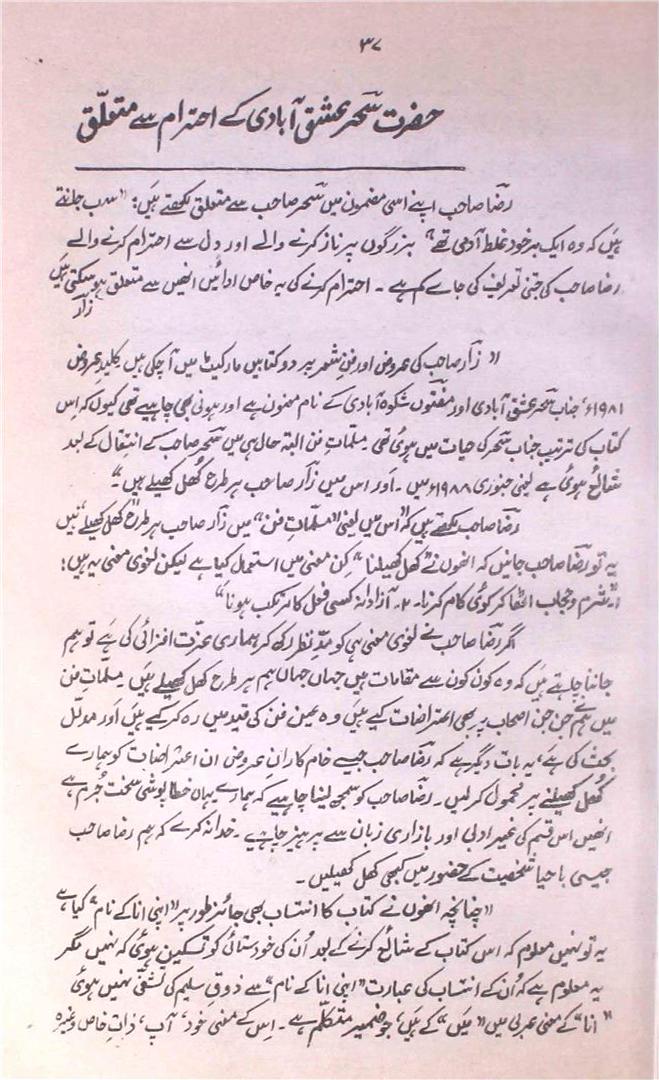 ۳۷
حضرت سحر عشق آبادی کے احترام سے متعلّق
رضا صاحب اپنے اسی مضمون میں سحر صاحب سے متعلق لکھتے ہیں: "سب جانتے
ہیں کہ وہ ایک بر خود غلط آدمی تھے" بزرگوں پر ناز کرنے والے اور دل سے احترام کرنے والے
رضا صاحب کی جتنی تعریف کی جائے کم ہے۔ احترام کرنے کی یہ خاص ادائیں انھیں سے متعلق ہو سکتی ہیں
زار
"زار صاحب کی عروض اور فنِ شعر پر دو کتابیں مارکیٹ میں آ چکی ہیں کلیدِ عروض
۱۹۸۱ء، جناب سحر عشق آبادی اور مفتوں شکوہ آبادی کے نام معنون ہے اور ہونی بھی چاہیے تھی کیوں کہ اس
کتاب کی ترتیب جناب سحر کی حیات میں ہوئی تھی مسلّماتِ فن البتہ حال ہی میں سحر صاحب کے انتقال کے بعد
شائع ہوئی ہے یعنی جنوری ۱۹۸۸ء میں۔ اور اس میں زار صاحب ہر طرح کُھل کھیلے ہیں۔"
رضا صاحب لکھتے ہیں کہ "اس میں یعنی "مسلّماتِ فن" میں زار صاحب ہر طرح کھل کھیلے ہیں
یہ تو رضا صاحب جانیں کہ انھوں نے "کھل کھیلنا" کن معنی میں استعمال کیا ہے لیکن لغوی معنی یہ ہیں:
"۱۔ شرم و حجاب اٹھا کر کوئی کام کرنا۔ ۲۔ آزادانہ کسی فعل کا مرتکب ہونا"
اگر رضا صاحب نے لغوی معنی ہی کو مدِّ نظر رکھ کر ہماری عزّت افزائی کی ہے تو ہم
جاننا چاہتے ہیں کہ وہ کون کون سے مقامات ہیں جہاں جہاں ہم ہر طرح کھل کھیلے ہیں۔ مسلّماتِ فن
میں ہم نے جن جن اصحاب پر بھی اعتراضات کیے ہیں وہ عین فن کی قید میں رہ کر کیے ہیں اور مدلّل
بحث کی ہے، یہ بات دیگر ہے کہ رضا صاحب جیسے خام کارانِ عروض ان اعتراضات کو ہمارے
کُھل کھیلنے پر محمول کر لیں۔ رضا صاحب کو سمجھ لینا چاہیے کہ ہمارے یہاں خطا پوشی سخت جُرم ہے
انھیں اس قسم کی غیر ادبی اور بازاری زبان سے پرہیز چاہیے۔ خدا نہ کرے کہ ہم رضا صاحب
جیسی باحیا شخصیت کے حضور میں کبھی کھل کھیلیں۔
"چنانچہ انھوں نے کتاب کا انتساب بھی جائز طور پر "اپنی انا کے نام" کیا ہے
یہ تو نہیں معلوم کہ اس کتاب کے شائع کرنے کے بعد اُن کی خودستائی کو تسکین ہوئی کہ نہیں مگر
یہ معلوم ہے کہ اُن کے انتساب کی عبارت "اپنی انا کے نام" سے ذوقِ سلیم کی تشفّی نہیں ہوئی
"انا" کے معنی عربی میں "میں" کے ہیں، جو ضمیر متکلّم ہے۔ اس کے معنی خود، آپ، ذاتِ خاص وغیرہ